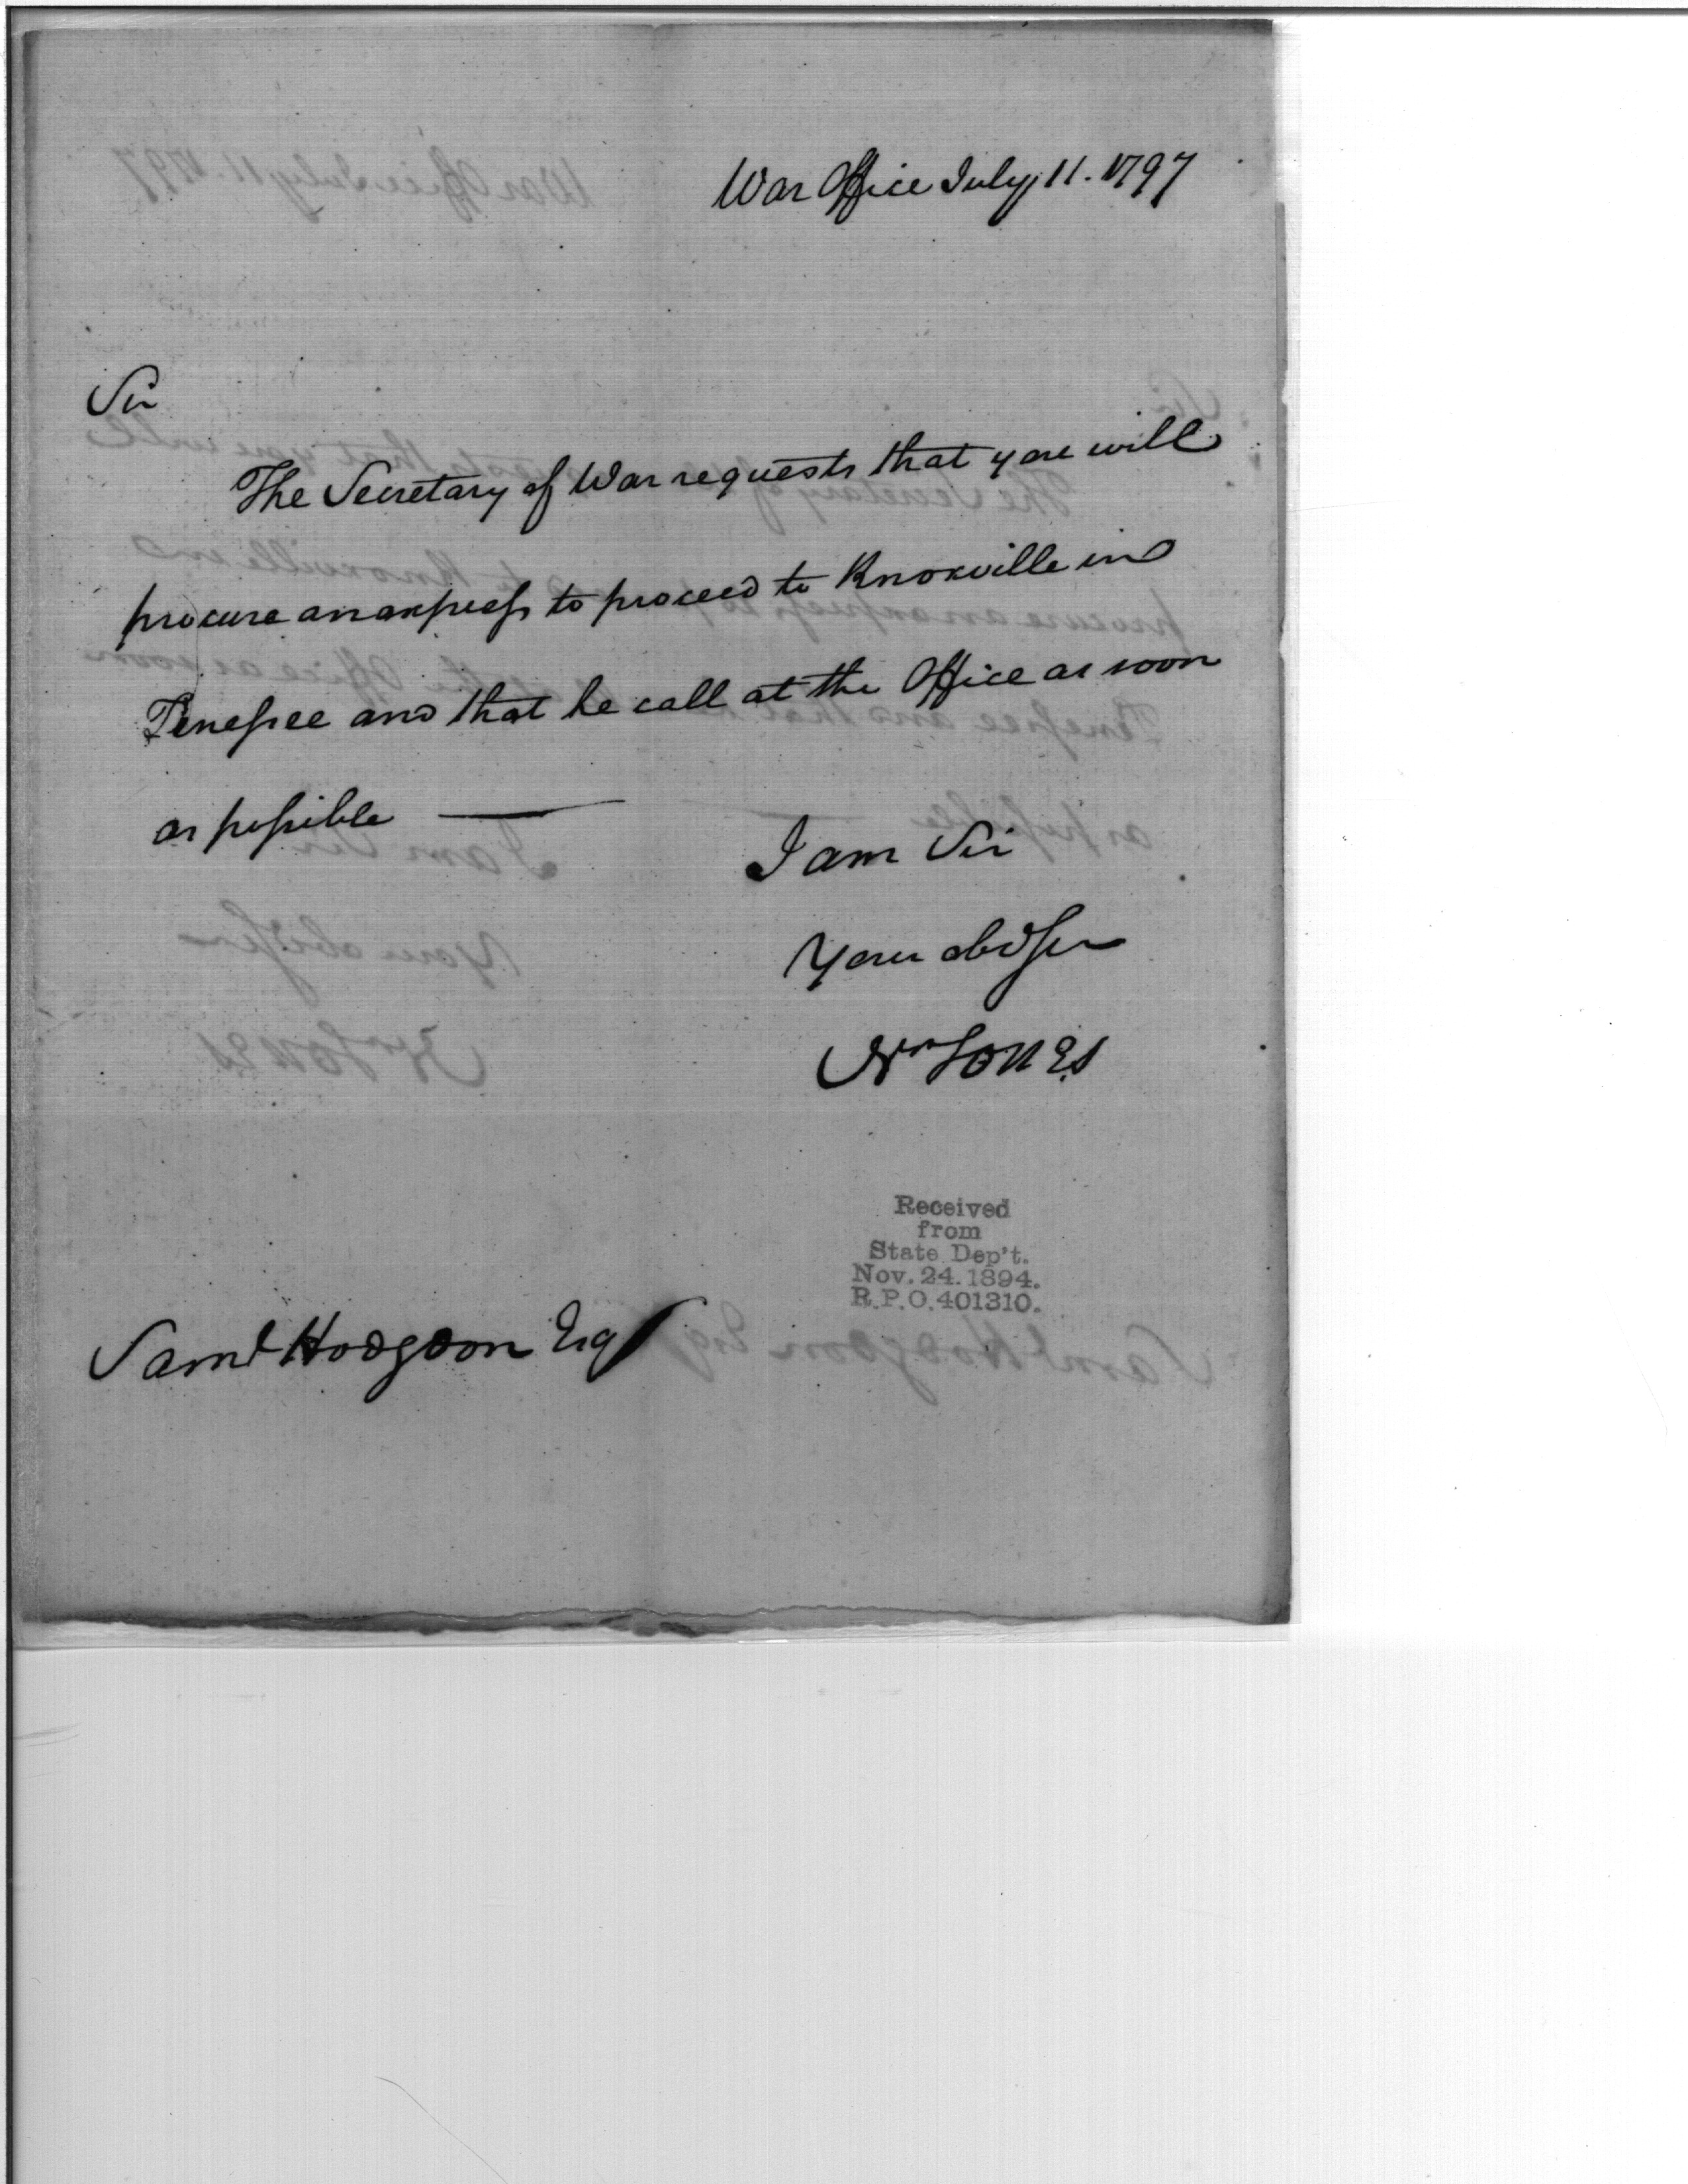 War Office July 11. 1797
Sir
The Secretary of War requests that you will
procure an express to proceed to Knoxville in
Tenessee and that he call at the Office as soon
as possible —
I am Sir
Your obd Ser
Wm Jones
Received
from
State Dep't.
Nov. 24. 1894.
R.P.O. 401310.
Saml Hodgdon Esq